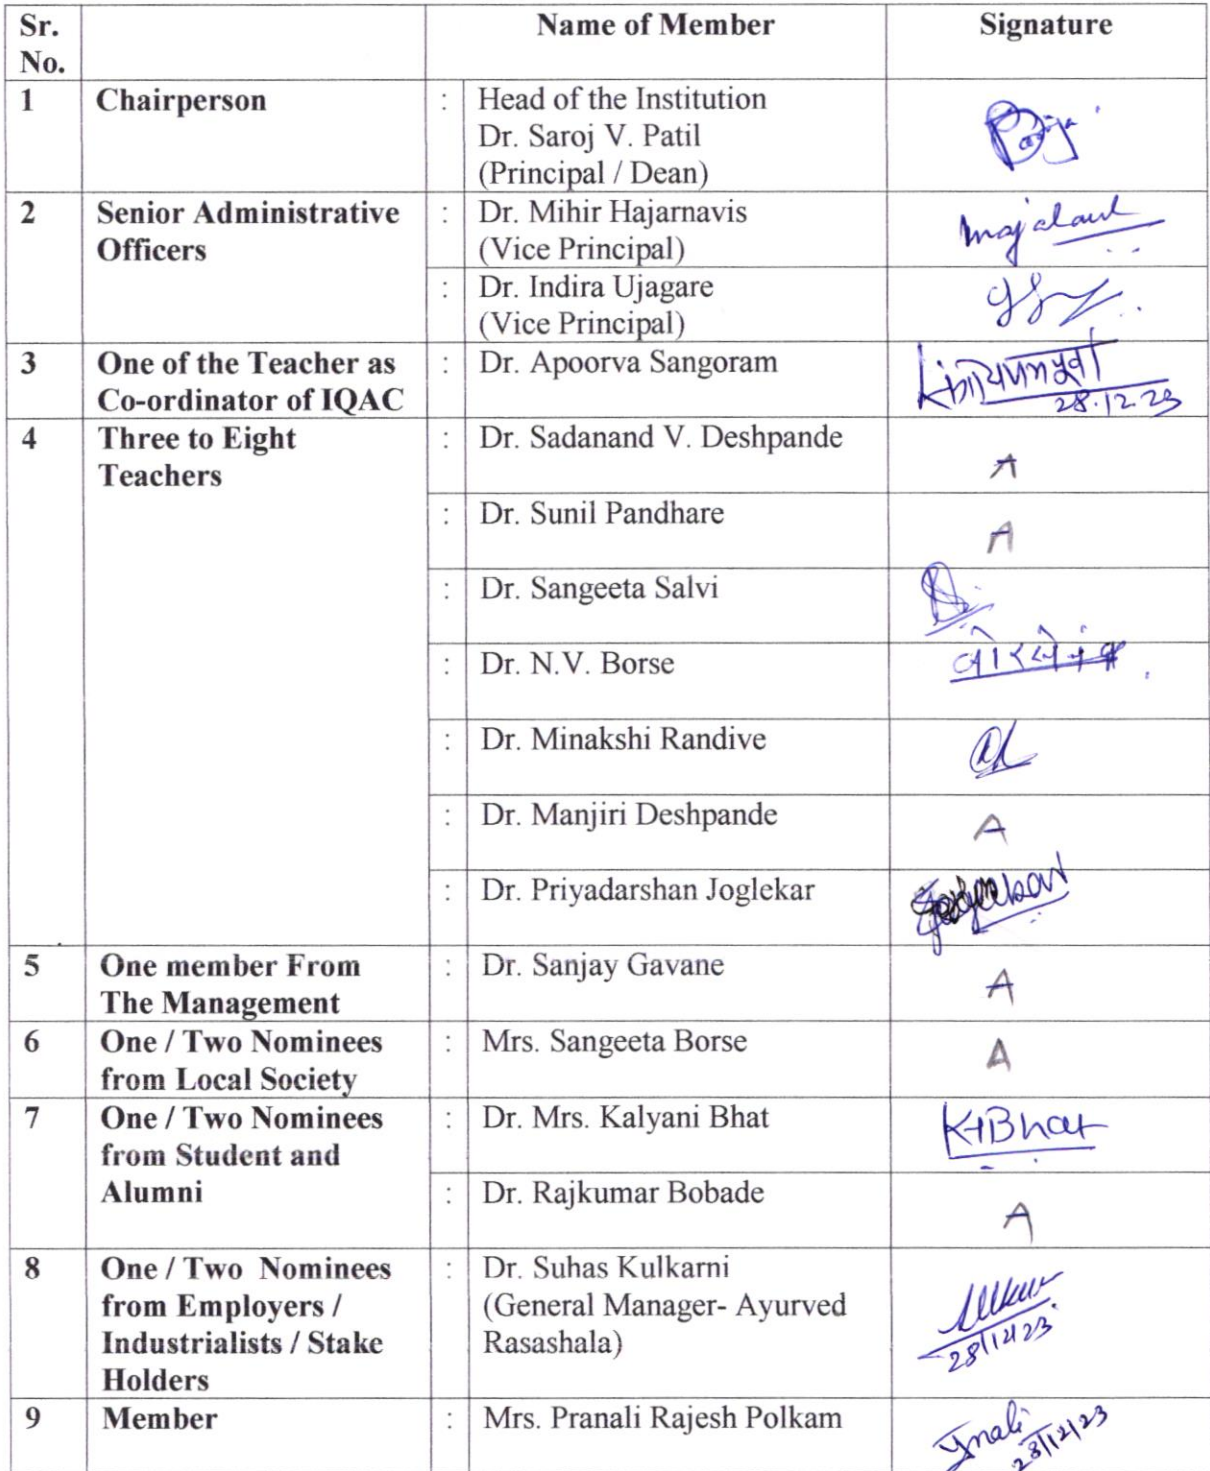 Sr. No.
Name of Member
Signature
1
Chairperson
:
Head of the Institution
Dr. Saroj V. Patil
(Principal / Dean)
2
Senior Administrative
Officers
:
Dr. Mihir Hajarnavis
(Vice Principal)
:
Dr. Indira Ujagare
(Vice Principal)
3
One of the Teacher as
Co-ordinator of IQAC
:
Dr. Apoorva Sangoram
28.12.23
4
Three to Eight
Teachers
:
Dr. Sadanand V. Deshpande
A
:
Dr. Sunil Pandhare
A
:
Dr. Sangeeta Salvi
:
Dr. N.V. Borse
:
Dr. Minakshi Randive
:
Dr. Manjiri Deshpande
A
:
Dr. Priyadarshan Joglekar
5
One member From
The Management
:
Dr. Sanjay Gavane
A
6
One / Two Nominees
from Local Society
:
Mrs. Sangeeta Borse
A
7
One / Two Nominees
from Student and
Alumni
:
Dr. Mrs. Kalyani Bhat
:
Dr. Rajkumar Bobade
A
8
One / Two Nominees
from Employers /
Industrialists / Stake
Holders
:
Dr. Suhas Kulkarni
(General Manager- Ayurved
Rasashala)
28/12/23
9
Member
:
Mrs. Pranali Rajesh Polkam
28/12/23